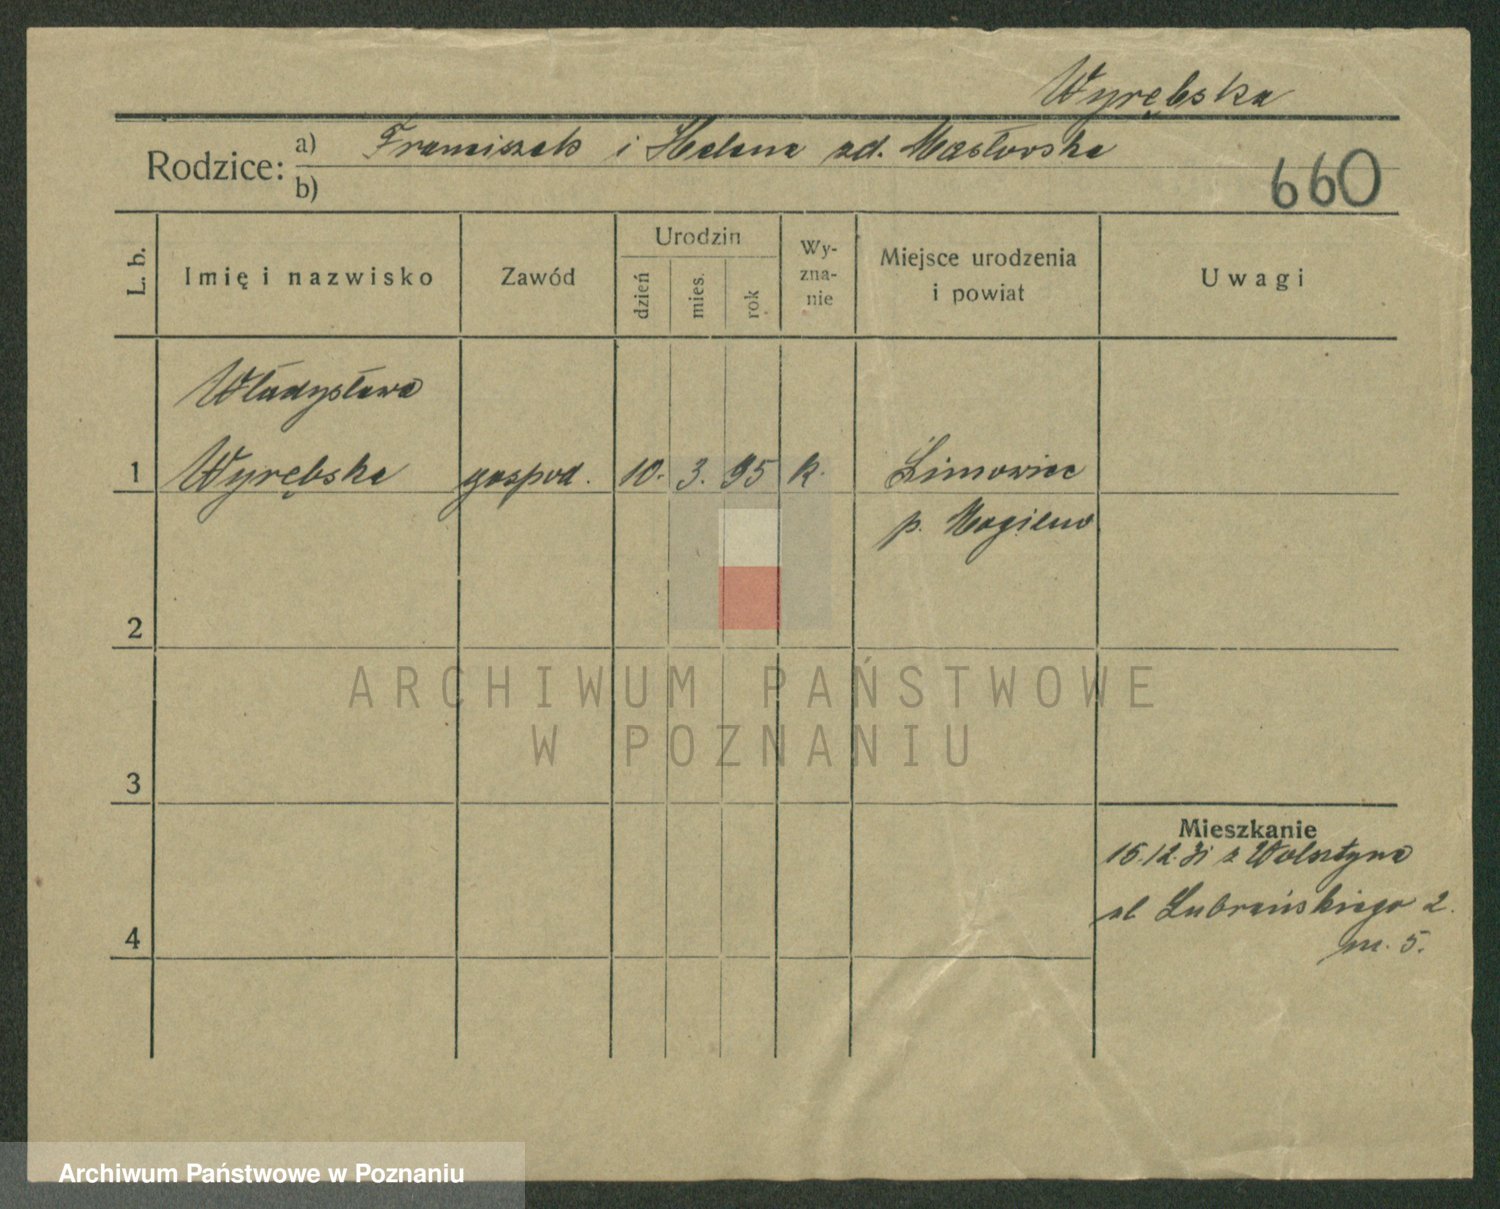 Wyrębska
Rodzice: a) Franciszek i Helena zd. Masłowska
b)
660
L. b. Imię i nazwisko Zawód Urodzin dzień mies. rok Wy-zna-nie Miejsce urodzenia i powiat Uwagi
Władysława
1 Wyrębska gospod. 10. 3. 95 k. Limowiec
p. Mogilno
2
ARCHIWUM PAŃSTWOWE
W POZNANIU
3
Mieszkanie
15.12.31 z Wolsztyna
ul Lubrańskiego 2.
m. 5.
4
Archiwum Państwowe w Poznaniu